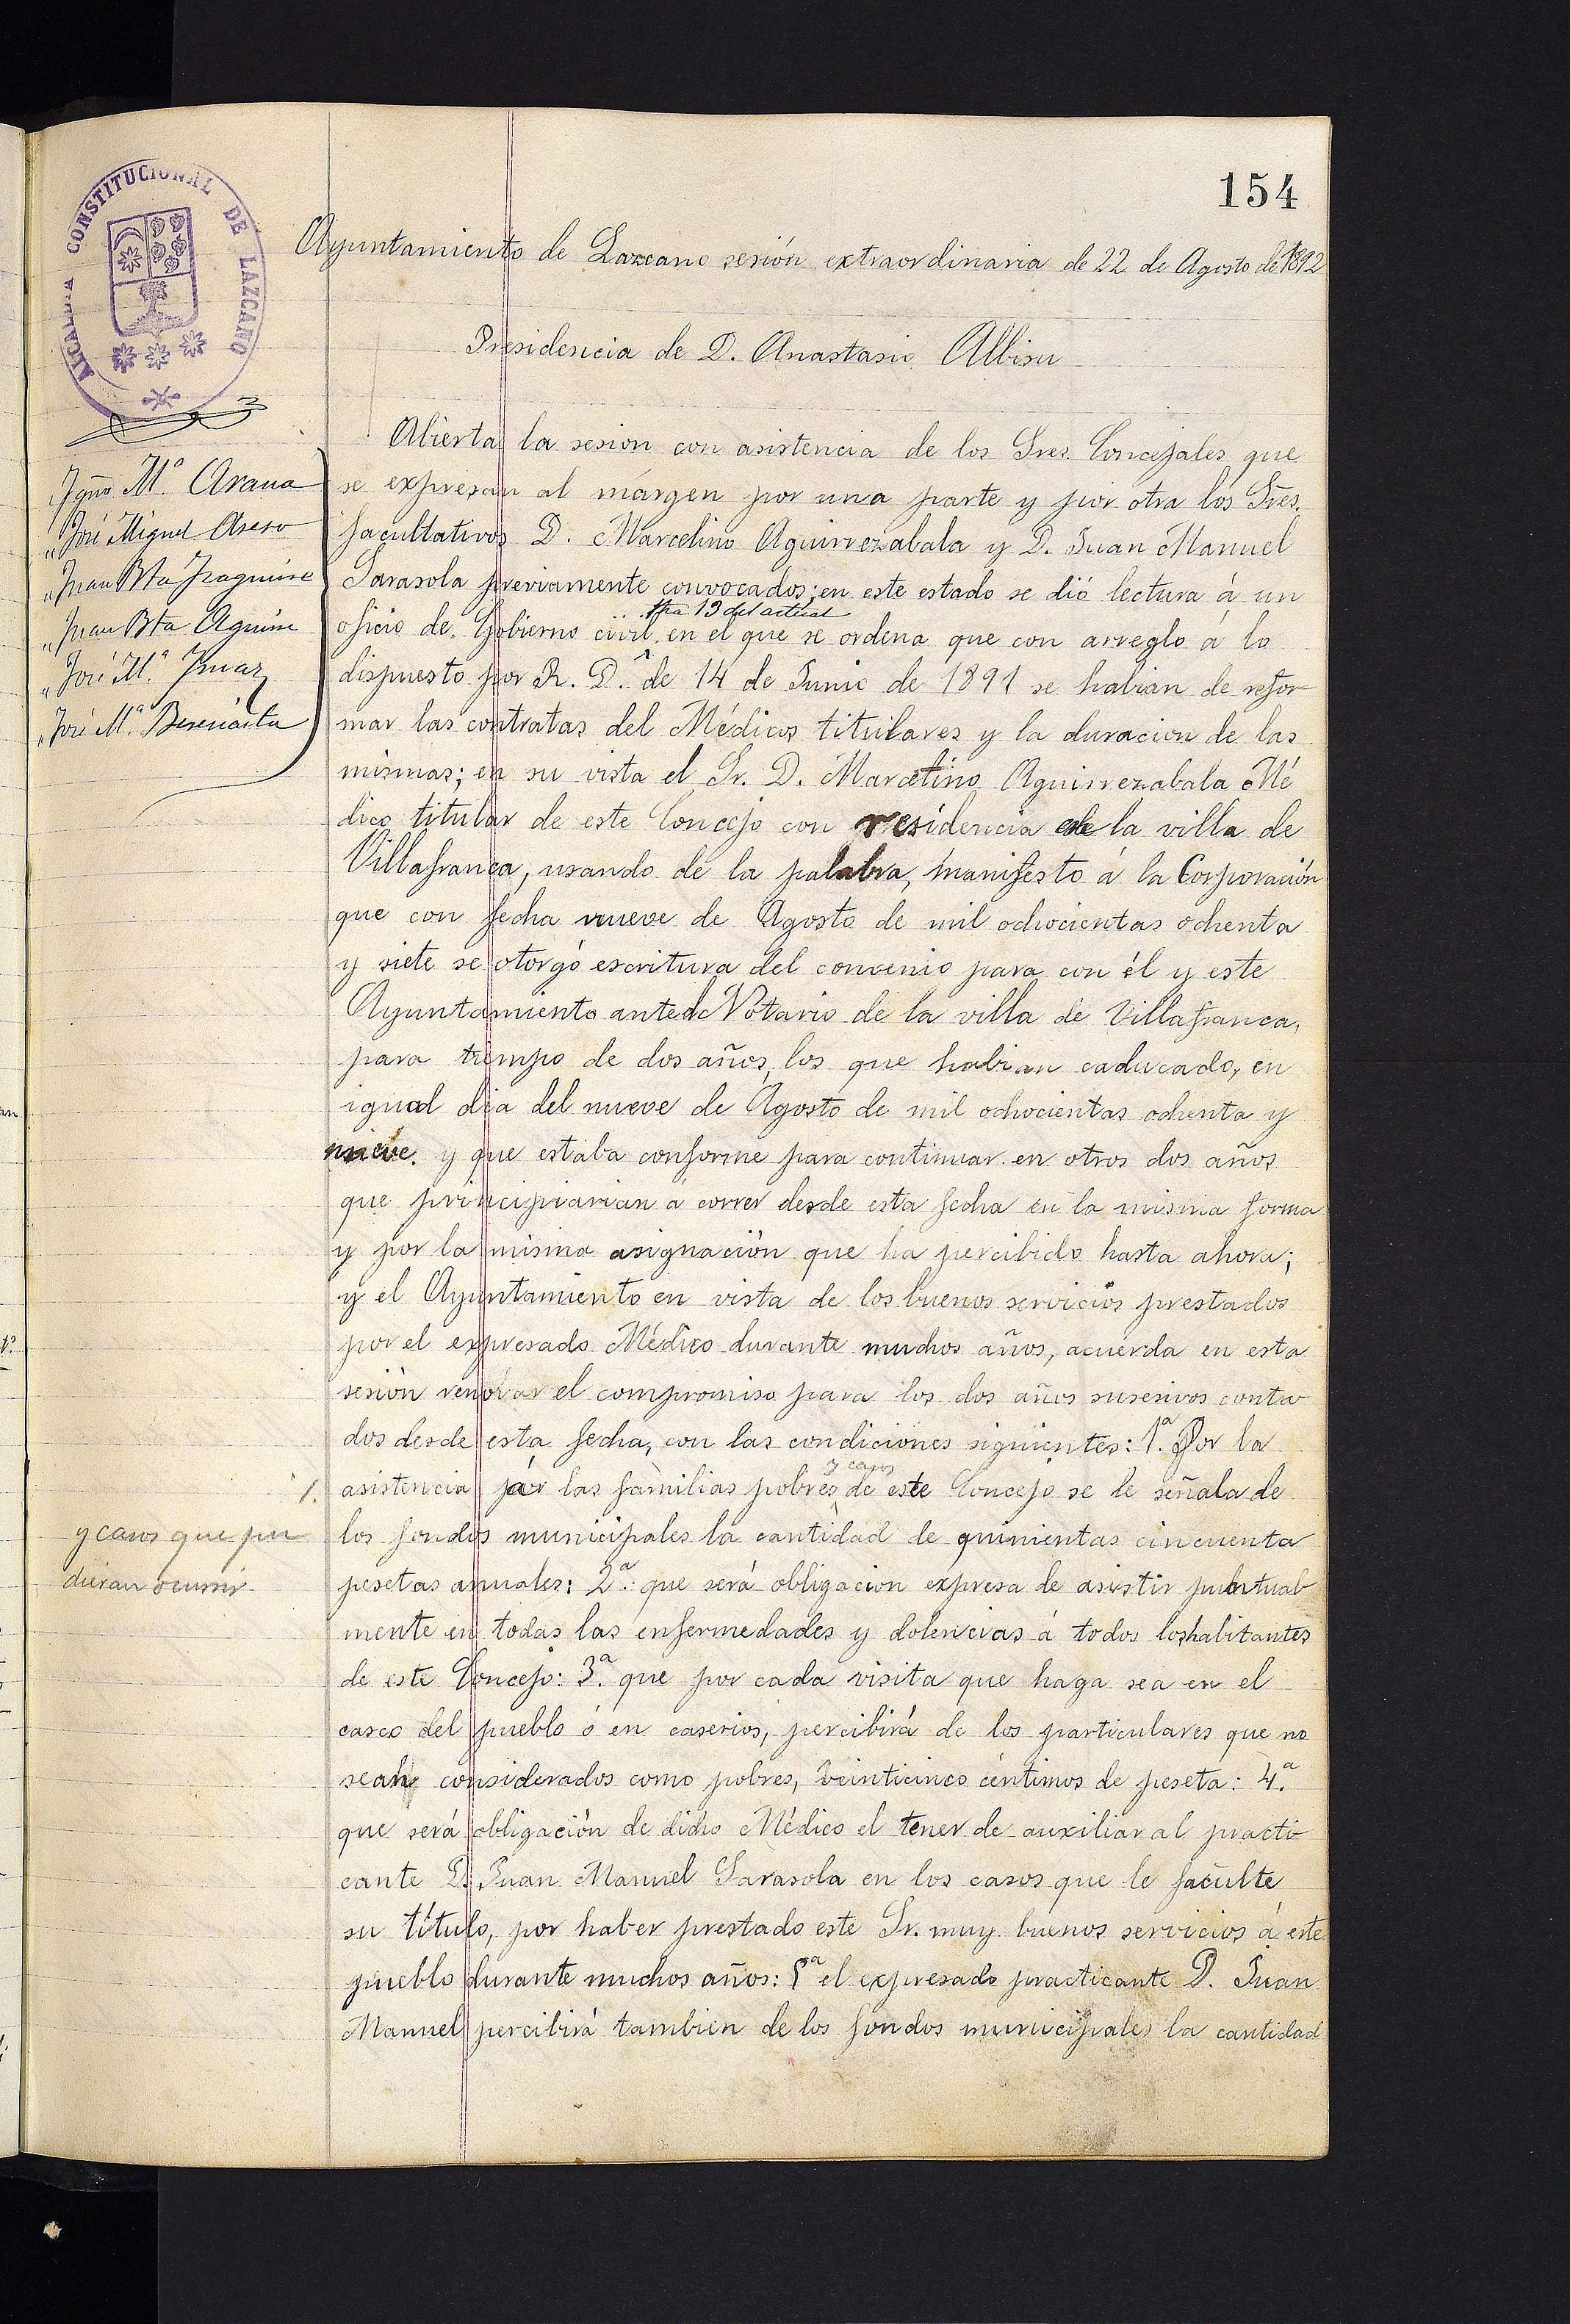 154
ALCALDIA CONSTITUCIONAL DE LAZCANO
Ayuntamiento de Lazcano sesión extraordinaria de 22 de Agosto de 1892
Presidencia de D. Anastasio Albisu
Igno Mª. Arana
" José Miguel Asero
" Juan Bta Izaguirre
" Juan Bta Aguirre
" José Mª. Imaz
" José Mª.
Abierta la sesion con asistencia de los Sres. Concejales que
se expresan al márgen por una parte y por otra los Sres.
facultativos D. Marcelino Aguirrezabala y D. Juan Manuel
Sarasola previamente convocados; en este estado se dió lectura á un
fha 13 del actual
oficio de Gobierno civil en el que se ordena que con arreglo á lo
dispuesto por R. D. de 14 de Junio de 1891 se habian de refor-
mar las contratas del Médicos titulares y la duracion de las
mismas; en su vista el Sr. D. Marcelino Aguirrezabala Mé
dico titular de este Concejo con residencia de la villa de
Villafranca, usando de la palabra, manifesto á la Corporación
que con fecha nueve de Agosto de mil ochocientas ochenta
y siete se otorgó escritura del convenio para con él y este
Ayuntamiento ante el Notario de la villa de Villafranca,
para tiempo de dos años, los que habian caducado, en
igual dia del nueve de Agosto de mil ochocientas ochenta y
nueve. y que estaba conforme para continuar en otros dos años
que principiarian á correr desde esta fecha en la misma forma
y por la misma asignación que ha percibido hasta ahora;
y el Ayuntamiento en vista de los buenos servicios prestados
por el expresado Médico durante muchos años, acuerda en esta
sesión renovar el compromiso para los dos años susesivos conta
dos desde esta fecha, con las condiciones siguientes: 1ª. Por la
y casos
asistencia por las familias pobres de este Concejo se le señala de
y casos que pu
dieran ocurrir
los fondos municipales la cantidad de quinientas cincuenta
pesetas anuales: 2ª. que será obligacion expresa de asistir puntual-
mente en todas las enfermedades y dolencias á todos los habitantes
de este Concejo: 3ª. que por cada visita que haga sea en el
casco del pueblo ó en caserios, percibirá de los particulares que no
sean considerados como pobres, veinticinco céntimos de peseta: 4.ª
que será obligación de dicho Médico el tener de auxiliar al practi-
cante D. Juan Manuel Sarasola en los casos que le faculte
su título, por haber prestado este Sr. muy buenos servicios á este
pueblo durante muchos años: 5ª el expresado practicante D. Juan
Manuel percibirá tambien de los fondos municipales la cantidad